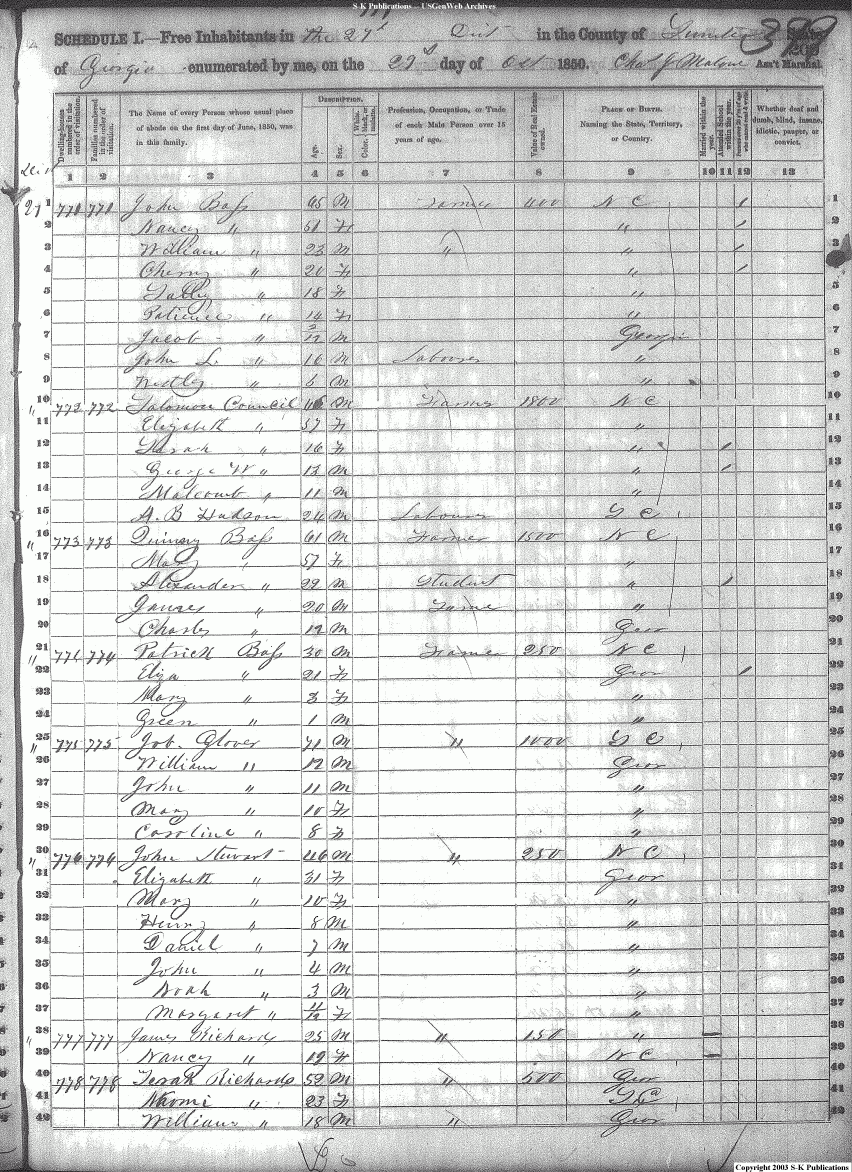 S-K Publications -- USGenWeb Archives
399
SCHEDULE I.—Free Inhabitants in the 27th Dist in the County of State
of Georgia enumerated by me, on the 29th day of Oct 1850. Chas J Malone Ass't Marshal.
Dwelling-houses numbered in the order of visitation. Families numbered in the order of visitation. The Name of every Person whose usual place of abode on the first day of June, 1850, was in this family. DESCRIPTION. Age. Sex. Color, White, black, or mulatto. Profession, Occupation, or Trade of each Male Person over 15 years of age. Value of Real Estate owned. PLACE OF BIRTH. Naming the State, Territory, or Country. Married within the year. Attended School within the year. Persons over 20 y'rs of age who cannot read & write. Whether deaf and dumb, blind, insane, idiotic, pauper, or convict.
1 2 3 4 5 6 7 8 9 10 11 12 13
27 1 771 771 John Bass 65 M Farmer 400 N C / 1
2 Nancy " 51 F " / 2
3 William " 23 M " " / 3
4 Cherry " 20 F " / 4
5 " 18 F " 5
6 Patience " 14 F " 6
7 Jacob " M Georgia 7
8 John L. " 16 M Labourer " 8
9 " 5 M " 9
" 10 772 772 Solomon Council 46 M Farmer 1800 N C 10
11 Elizabeth " 57 F " 11
12 Sarah " 16 F " / 12
13 George W " 13 M " / 13
14 Malcomb " 11 M " 14
15 A. B Hudson 24 M Labourer S C 15
" 16 773 773 Bass 61 M Farmer 1500 N C 16
17 Mary " 57 F " 17
18 Alexander " 22 M Student " / 18
19 " 20 M Farmer " 19
20 Charles " 12 M Geor 20
" 21 774 774 Patrick Bass 30 M Farmer 250 N C 21
22 Eliza " 21 F Geor / 22
23 Mary " 3 F " 23
24 Green " 1 M " 24
" 25 775 775 Job. Glover 71 M " 1000 S C 25
26 William " 12 M Geor 26
27 John " 11 M " 27
28 Mary " 10 F " 28
29 Caroline " 8 F " 29
" 30 776 776 John Stewart 46 M " 250 N C 30
31 Elizabeth " 31 F Geor 31
32 Mary " 10 F " 32
33 Henry " 8 M " 33
34 Daniel " 7 M " 34
35 John " 4 M " 35
36 Noah " 3 M " 36
37 Margaret " 11/12 F " 37
" 38 777 777 James Richards 25 M " 150 " 38
39 Nancy " 19 F N C 39
40 778 778 Richards 52 M " 500 Geor 40
41 Naomi " 23 F 41
42 William " 18 M " Geor 42
Copyright 2003 S-K Publications